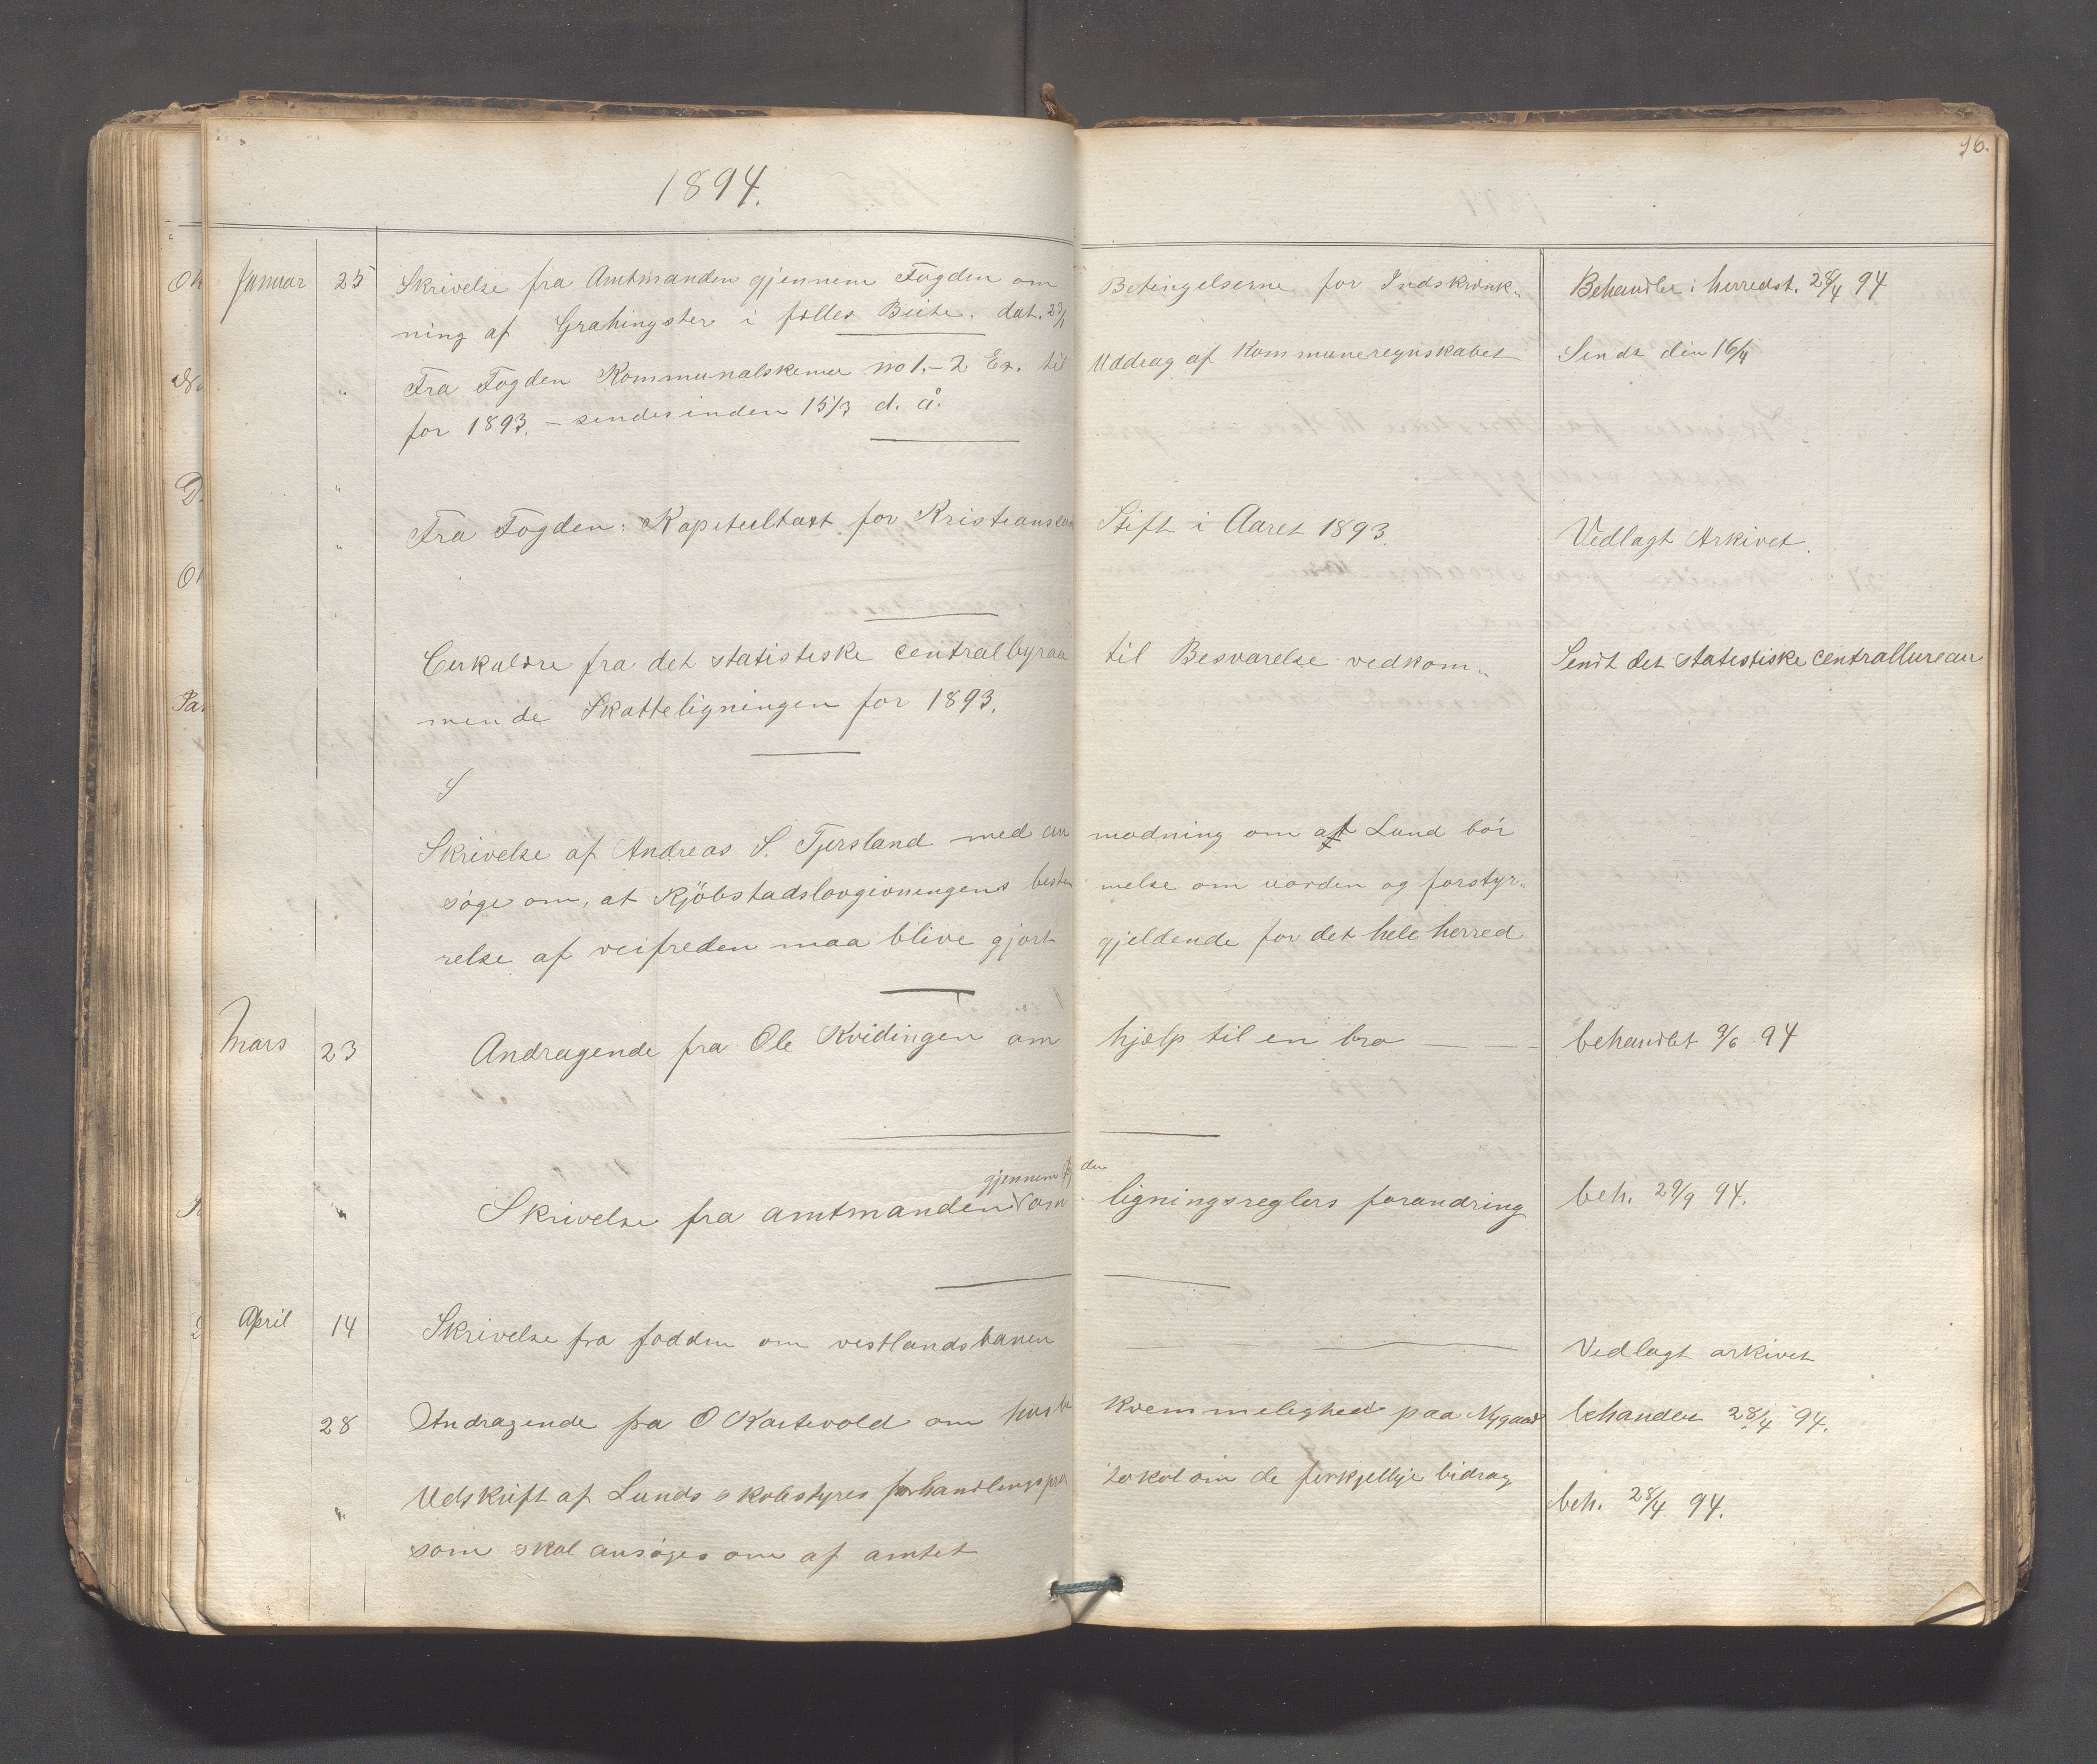 1894.
96.
Januar 25 Skrivelse fra Amtmanden gjennem Fogden om Betingelserne for Indskrænk„ Behandlet i herredst. 28/4 94
ning af Grahingster i fælles Beite. dat. 23/1
„ Fra Fogden Kommunalskema no 1.- 2 Ex. til Uddrag af Kommuneregnskabet Sendt den 16/4
for 1893. - sendes inden 15/3 d. å.
„
„ Fra Fogden: Kapiteltaxt for Kristiansan Stift i Aaret 1893. Vedlagt Arkivet.
„ Cirkulære fra det statistiske centralbyraa til Besvarelse vedkom„ Sendt det statestiske centralbureau
mende Skatteligningen for 1893.
S
Skrivelse af Andreas S. Tjersland med an modning om at Lund bør
søge om, at Kjöbstadslovgivningens bestem melse om uorden og forstyr„
relse af veifreden maa blive gjort gjeldende for det hele herred
Mars 23 Andragende fra Ole Kvidingen om hjælp til en bro — — — behandlet 9/6 94
gjennem fog den
„ Skrivelse fra amtmanden om ligningsreglers forandring beh. 29/9 94.
April 14 Skrivelse fra fodden om vestlandsbanen Vedlagt arkivet
28 Andragende fra O Kartevold om husbe kvemmelighed paa Nygaard behandlet 28/4 94.
„ Udskrift af Lunds skolestyres forhandlingspro tokol om de forkjellige bidrag beh. 28/4 94.
som skal ansøges om af amtet